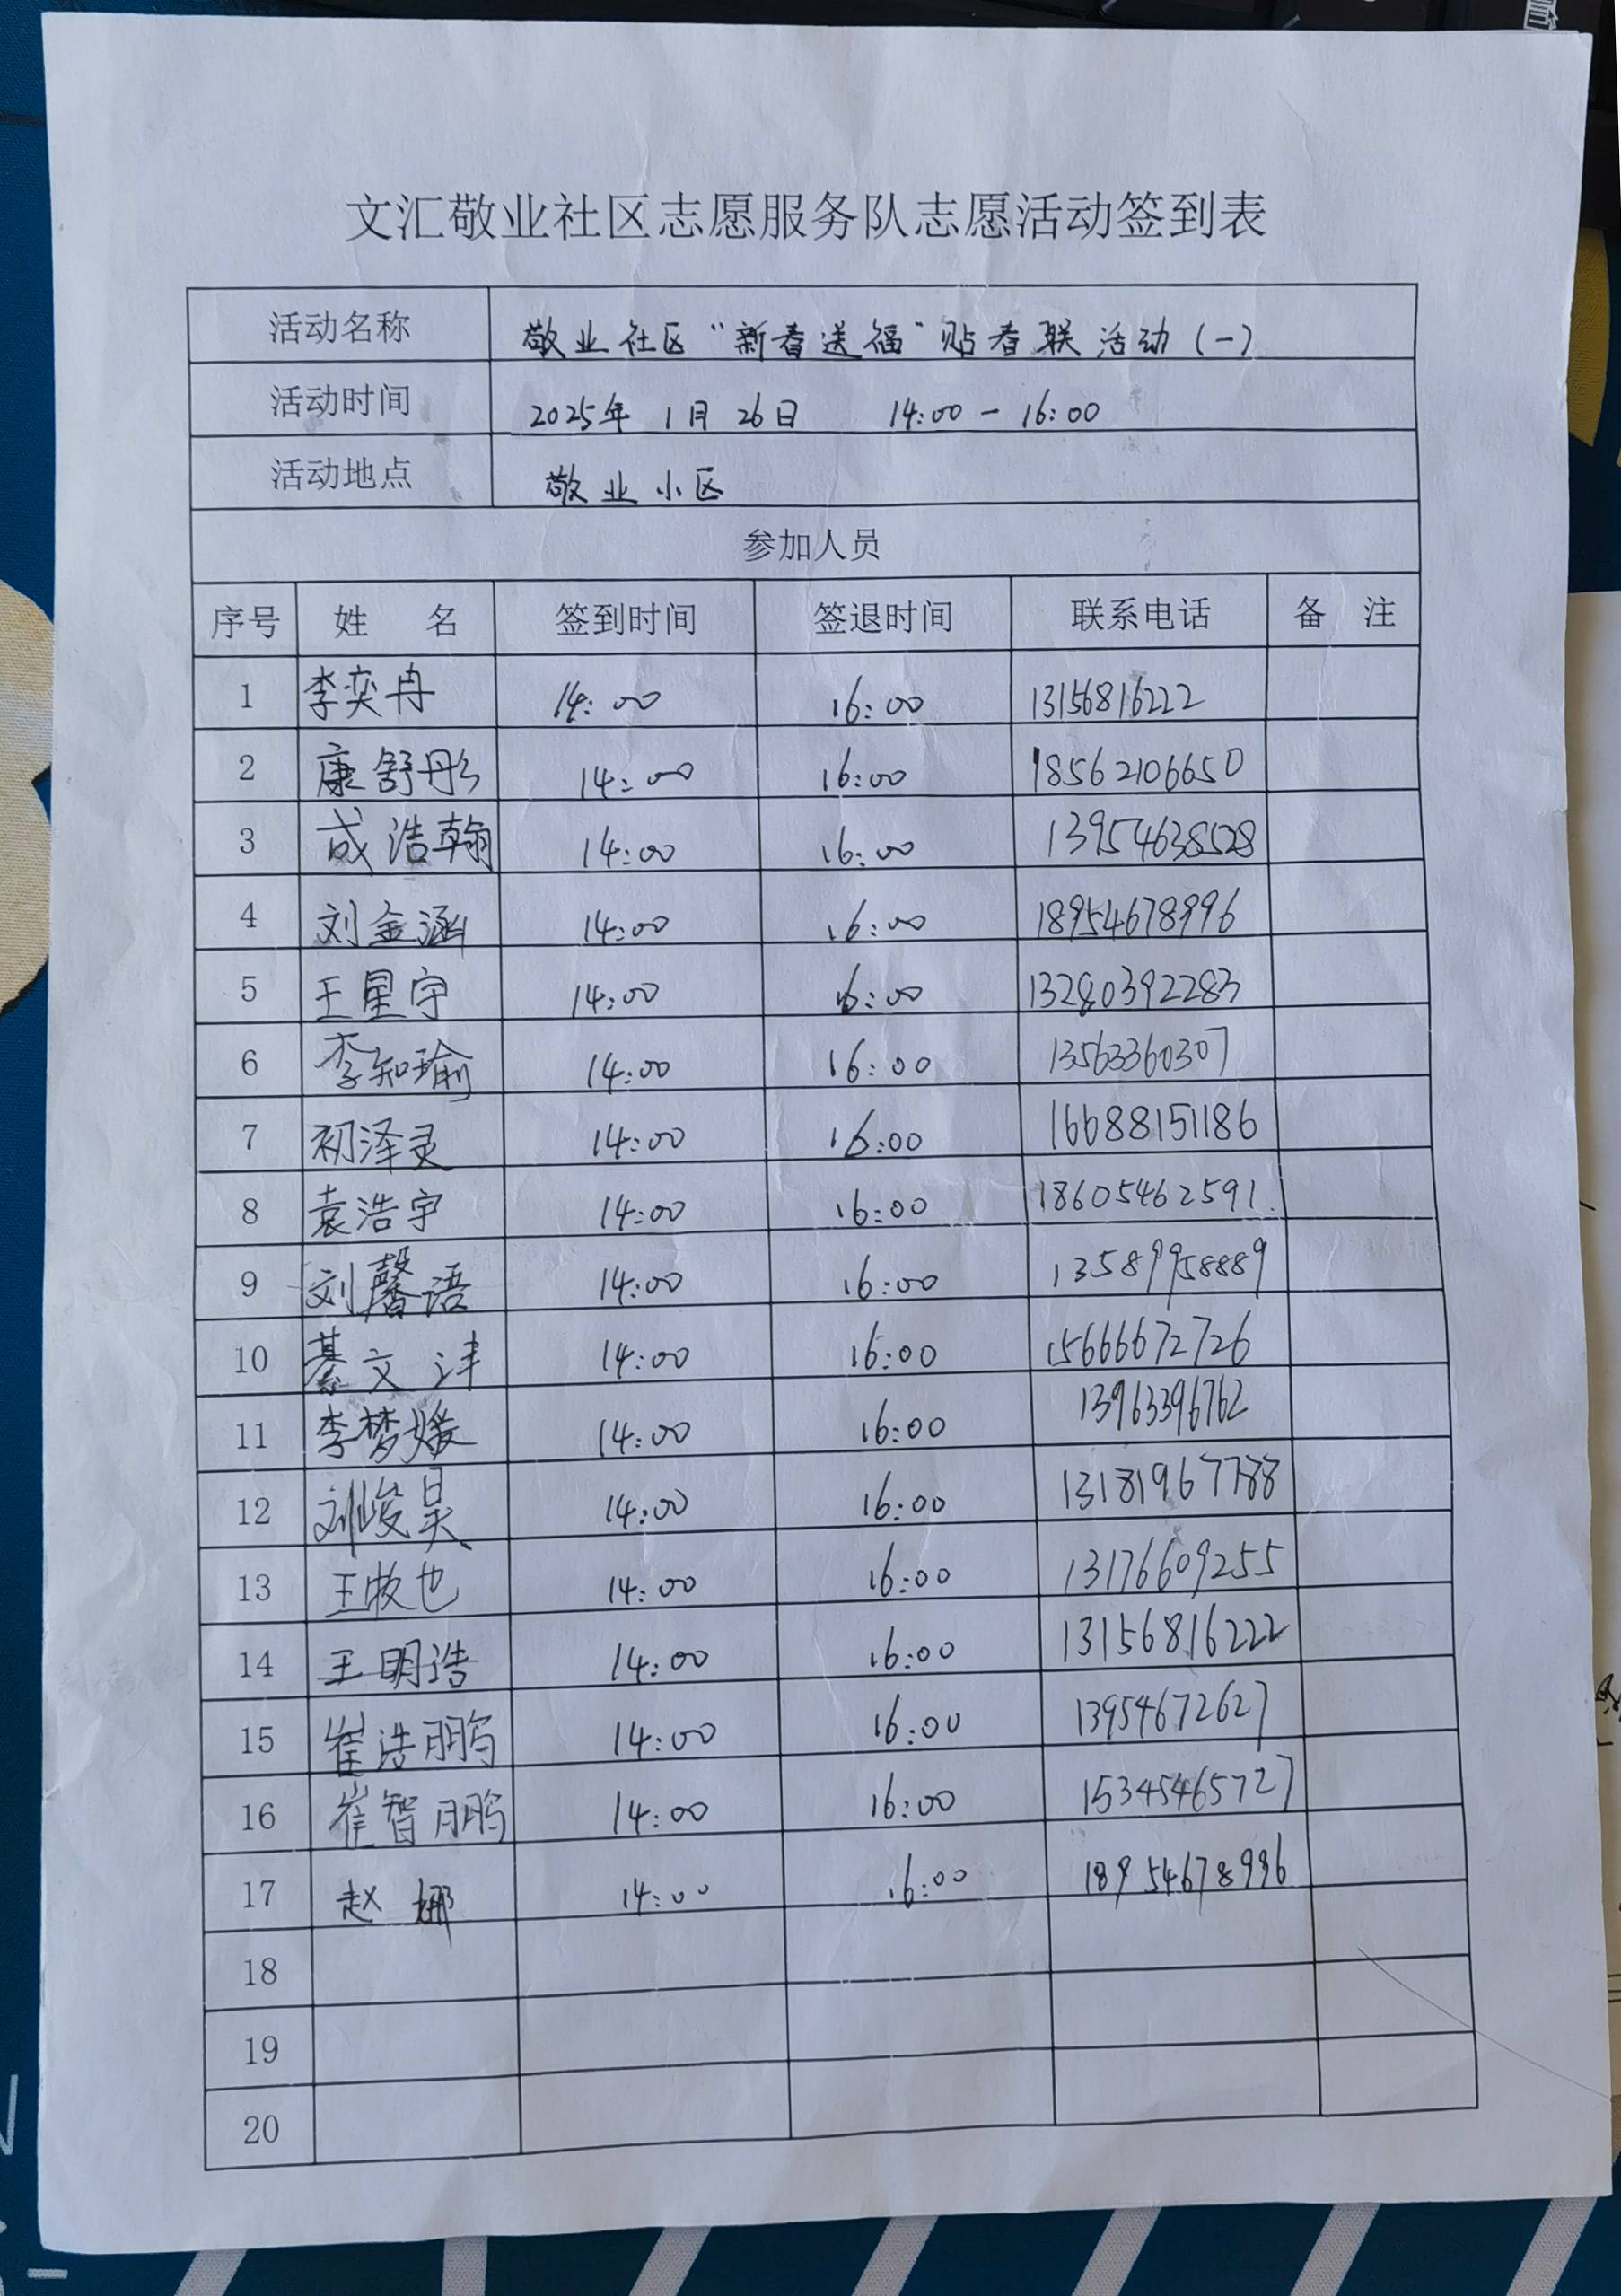 文汇敬业社区志愿服务队志愿活动签到表
活动名称 敬业社区“新春送福”贴春联活动(一)
活动时间 2025年1月26日 14:00-16:00
活动地点 敬业小区
参加人员
序号 姓 名 签到时间 签退时间 联系电话 备 注
1 李奕冉 14:00 16:00 13156816222
2 康舒彤 14:00 16:00 18562106650
3 成浩翰 14:00 16:00 13954638528
4 刘金涵 14:00 16:00 18954678996
5 王星宇 14:00 16:00 13280392283
6 李知瑜 14:00 16:00 13563360307
7 初泽灵 14:00 16:00 16688151186
8 袁浩宇 14:00 16:00 18605462591
9 刘馨语 14:00 16:00 13589958889
10 綦文沣 14:00 16:00 15666672726
11 李梦媛 14:00 16:00 13963396762
12 刘峻昊 14:00 16:00 13181967788
13 王牧也 14:00 16:00 13176609255
14 王明浩 14:00 16:00 13156816222
15 崔浩鹏 14:00 16:00 13954672627
16 崔智鹏 14:00 16:00 15345465727
17 赵娜 14:00 16:00 18954678996
18
19
20